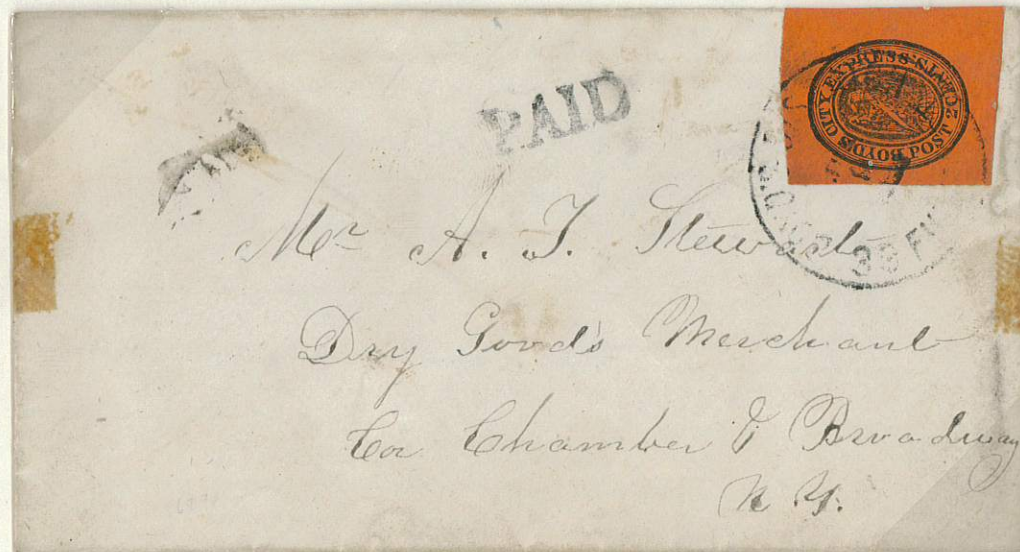 PAID
BOYD'S CITY EXPRESS POST 2 CENTS
39 FU
Mr A. T. Stewart
Dry Goods Merchant
Cor Chamber & Broadway
N Y.